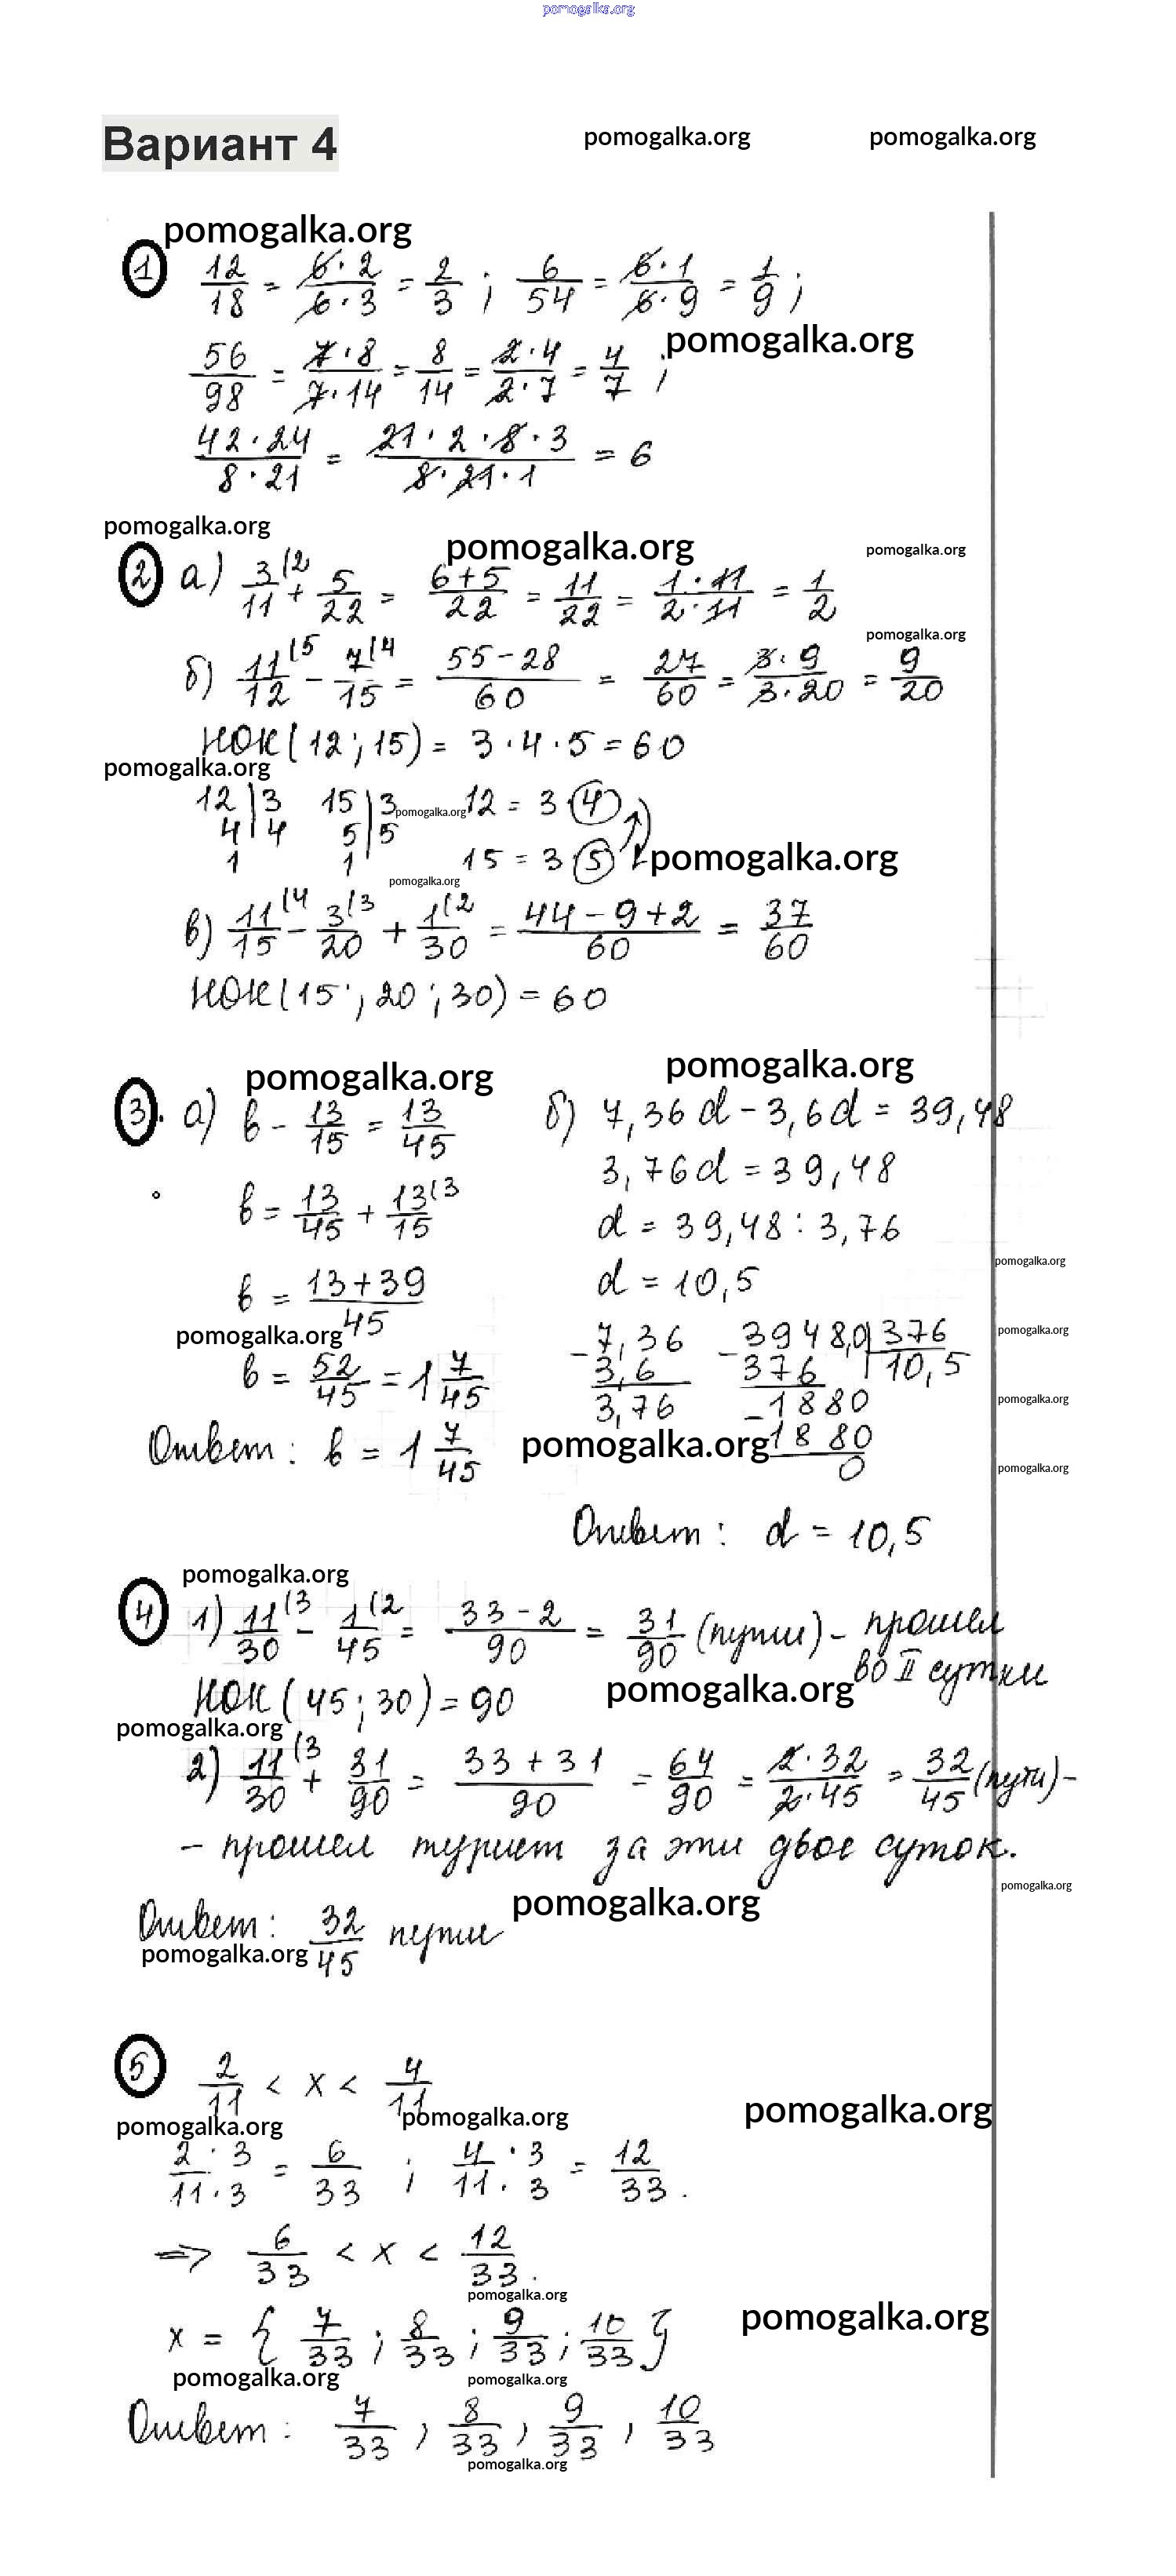 pomogalka.org
Вариант 4
pomogalka.org pomogalka.org
pomogalka.org
1 12/18 = 6·2/6·3 = 2/3 ; 6/54 = 6·1/6·9 = 1/9 ;
pomogalka.org
56/98 = 7·8/7·14 = 8/14 = 2·4/2·7 = 4/7 ;
42·24/8·21 = 21·2·8·3/8·21·1 = 6
pomogalka.org
pomogalka.org
pomogalka.org
2 а) 3/11 (2 + 5/22 = 6+5/22 = 11/22 = 1·11/2·11 = 1/2
pomogalka.org
б) 11/12 (5 - 7/15 (4 = 55-28/60 = 27/60 = 3·9/3·20 = 9/20
НОК(12;15) = 3·4·5 = 60
pomogalka.org
12|3 15|3 12 = 3 4
pomogalka.org
4|4 5|5
1 1 15 = 3 5
pomogalka.org
pomogalka.org
в) 11/15 (4 - 3/20 (3 + 1/30 (2 = 44-9+2/60 = 37/60
НОК(15; 20; 30) = 60
pomogalka.org
pomogalka.org
3. а) в - 13/15 = 13/45
в = 13/45 + 13/15 (3
в = 13+39/45
pomogalka.org
в = 52/45 = 1 7/45
Ответ: в = 1 7/45
б) 7,36d - 3,6d = 39,48
3,76d = 39,48
d = 39,48 : 3,76
pomogalka.org
d = 10,5
pomogalka.org
- 7,36 - 3948,0|376
3,6 376 10,5
3,76 - 1880
pomogalka.org
pomogalka.org
1880
0
pomogalka.org
Ответ: d = 10,5
pomogalka.org
4 1) 11/30 (3 - 1/45 (2 = 33-2/90 = 31/90 (пути) - прошел
во II сутки
НОК(45; 30) = 90
pomogalka.org
pomogalka.org
2) 11/30 (3 + 31/90 = 33+31/90 = 64/90 = 2·32/2·45 = 32/45 (пути) -
- прошел турист за эти двое суток.
pomogalka.org
pomogalka.org
Ответ: 32/45 пути
pomogalka.org
5 2/11 < x < 4/11
pomogalka.org
pomogalka.org
pomogalka.org
2·3/11·3 = 6/33 ; 4·3/11·3 = 12/33.
=> 6/33 < x < 12/33.
pomogalka.org
pomogalka.org
x = { 7/33 ; 8/33 ; 9/33 ; 10/33 }
pomogalka.org
pomogalka.org
Ответ: 7/33 , 8/33 , 9/33 , 10/33
pomogalka.org